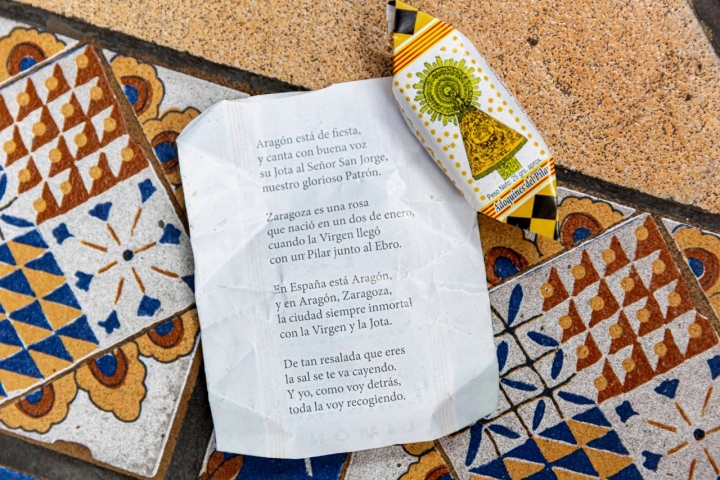 Aragón está de fiesta,
y canta con buena voz
su Jota al Señor San Jorge,
nuestro glorioso Patrón.
Zaragoza es una rosa
que nació en un dos de enero,
cuando la Virgen llegó
con un Pilar junto al Ebro.
En España está Aragón,
y en Aragón, Zaragoza,
la ciudad siempre inmortal
con la Virgen y la Jota.
De tan resalada que eres
la sal se te va cayendo.
Y yo, como voy detrás,
toda la voy recogiendo.
Peso Neto: 25 grs. aprox.
Adoquines del Pilar